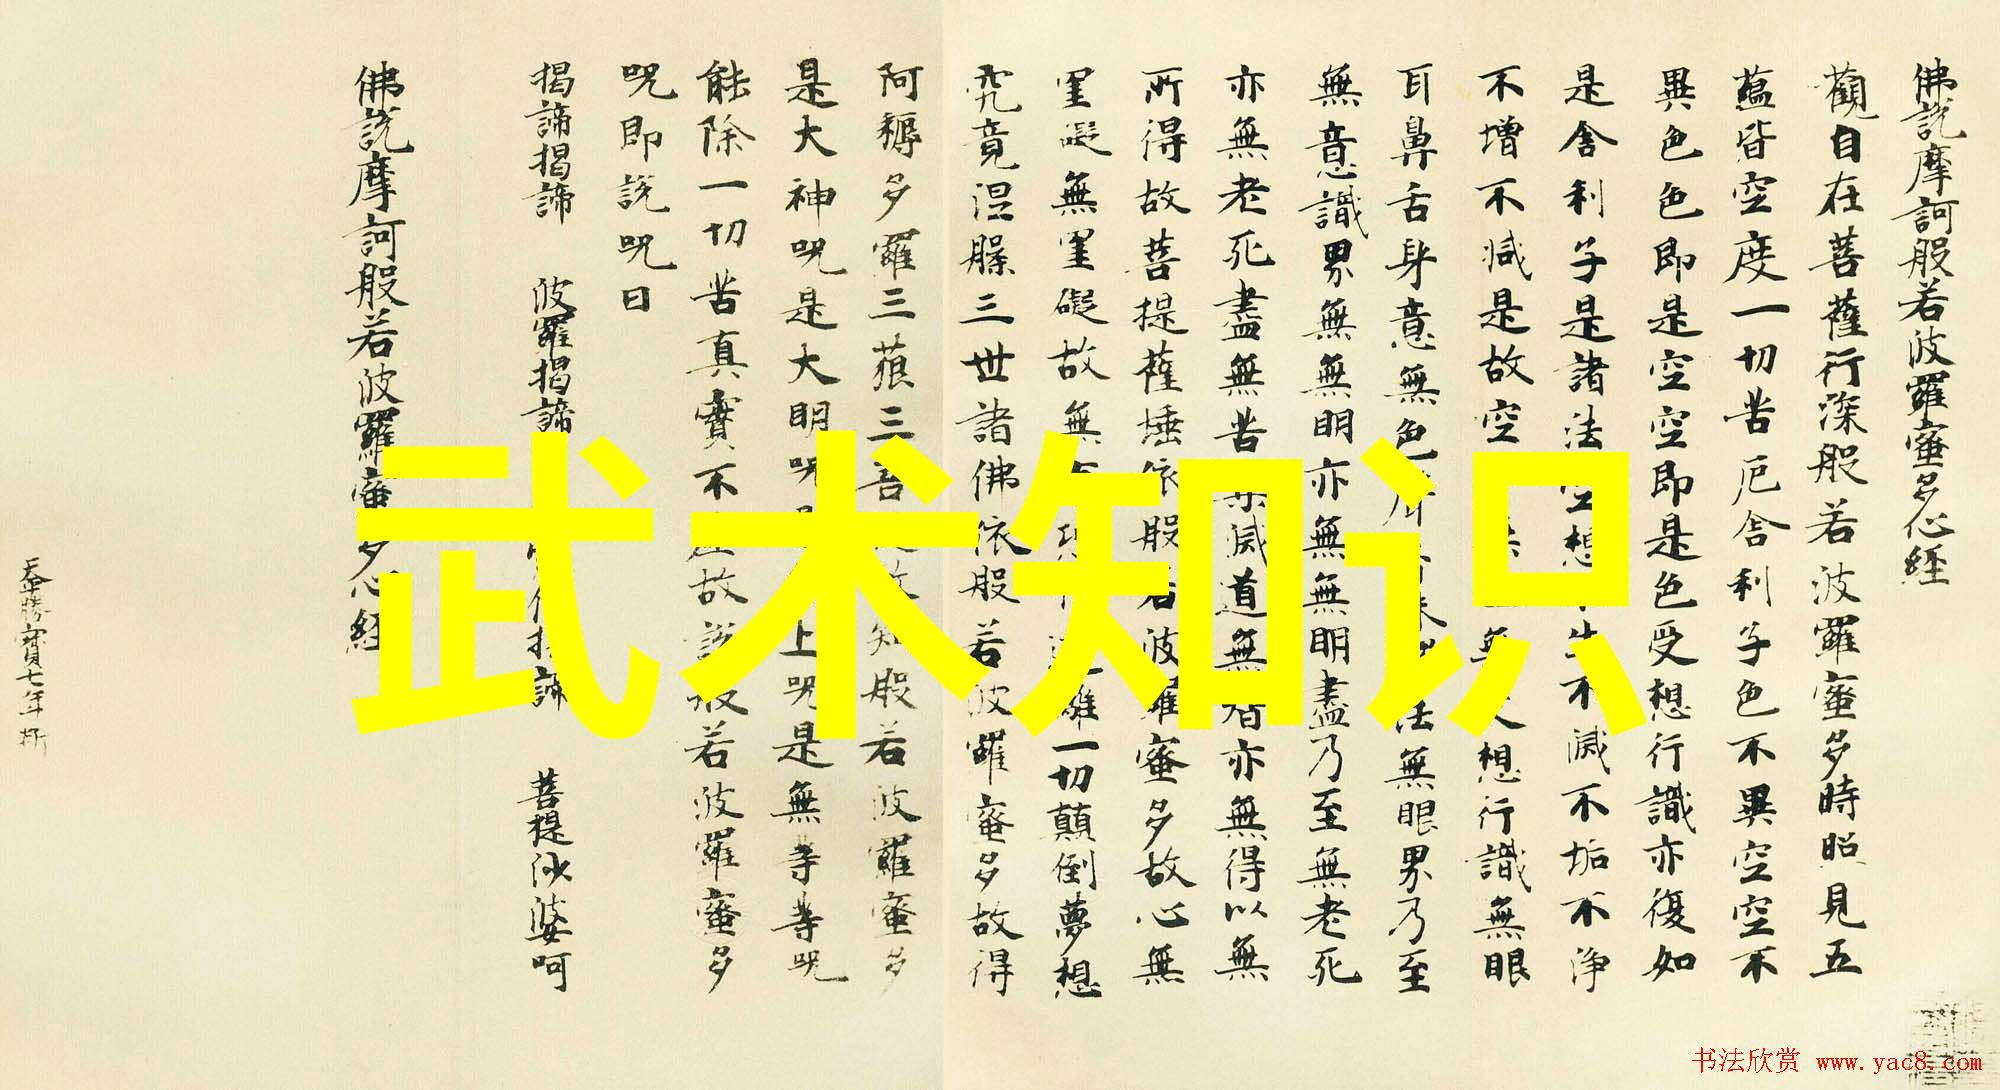 佛說摩訶般若波羅蜜多心経
觀自在菩薩行深般若波羅蜜多時照見五
蘊皆空度一切苦厄舍利子色不異空空不
異色色即是空空即是色受想行識亦復如
是舍利子是諸法想生不滅不垢不淨
不增不減是故空無想行識無眼
耳鼻舌身意無色法無眼界乃至
無意識界無無明亦無無明盡乃至無老死
亦無老死盡無苦滅道無智亦無得以無
所得故菩提薩埵依般若波羅蜜多故心無
罣礙無罣礙故無離一切顛倒夢想
究竟涅槃三世諸佛依般若波羅蜜多故得
阿耨多羅三藐三知般若波羅蜜多
是大神呪是大明呪上呪是無等等呪
能除一切苦真實不故說般若波羅蜜多
呪即說呪曰
揭諦揭諦 波羅揭諦 諦 菩提沙婆呵
佛說摩訶般若波羅蜜多心経
勝寳七年
武术知识
书法欣赏 www.yac8.com